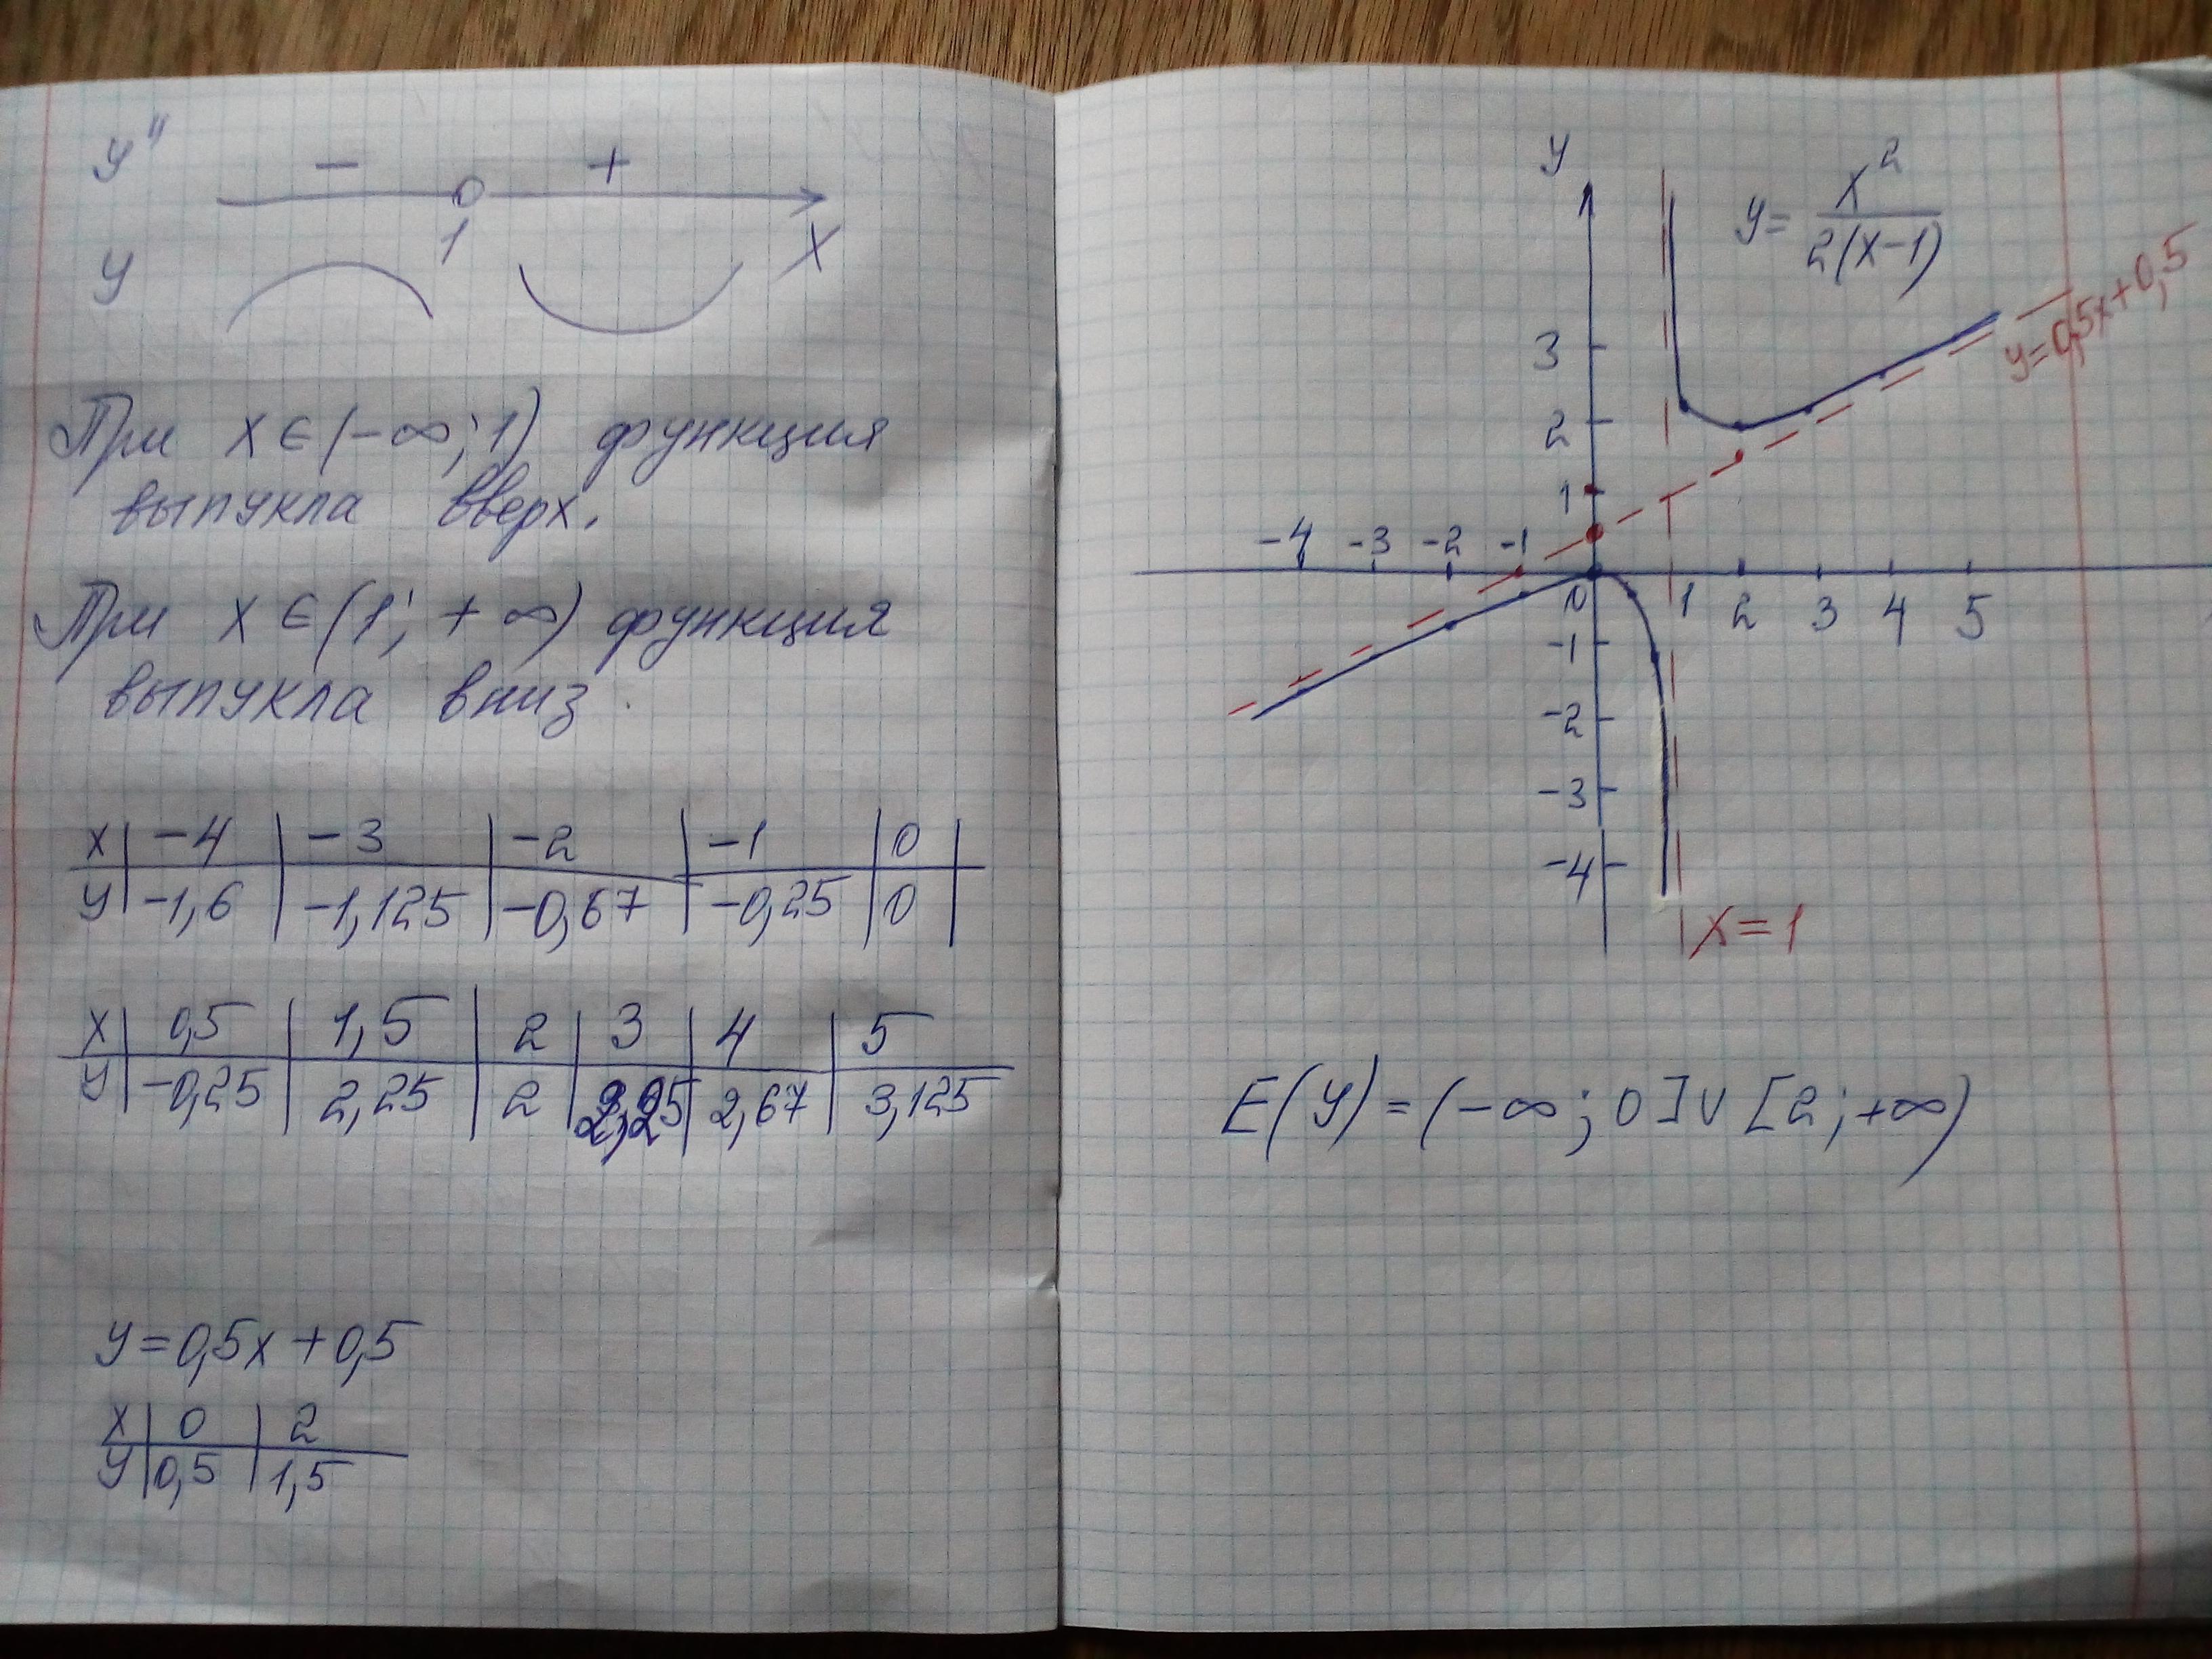 y''
− +
1 x
y
При x ∈ (−∞; 1) функция
выпукла вверх.
При x ∈ (1; +∞) функция
выпукла вниз.
x | −4 | −3 | −2 | −1 | 0 |
y | −1,6 | −1,125 | −0,67 | −0,25 | 0 |
x | 0,5 | 1,5 | 2 | 3 | 4 | 5
y | −0,25 | 2,25 | 2 | 2,25 | 2,67 | 3,125
y = 0,5x + 0,5
x | 0 | 2
y | 0,5 | 1,5
y
y = x² / 2(x−1)
y = 0,5x + 0,5
3
2
1
−4 −3 −2 −1
0 1 2 3 4 5
−1
−2
−3
−4
x = 1
E(y) = (−∞; 0] ∪ [2; +∞)